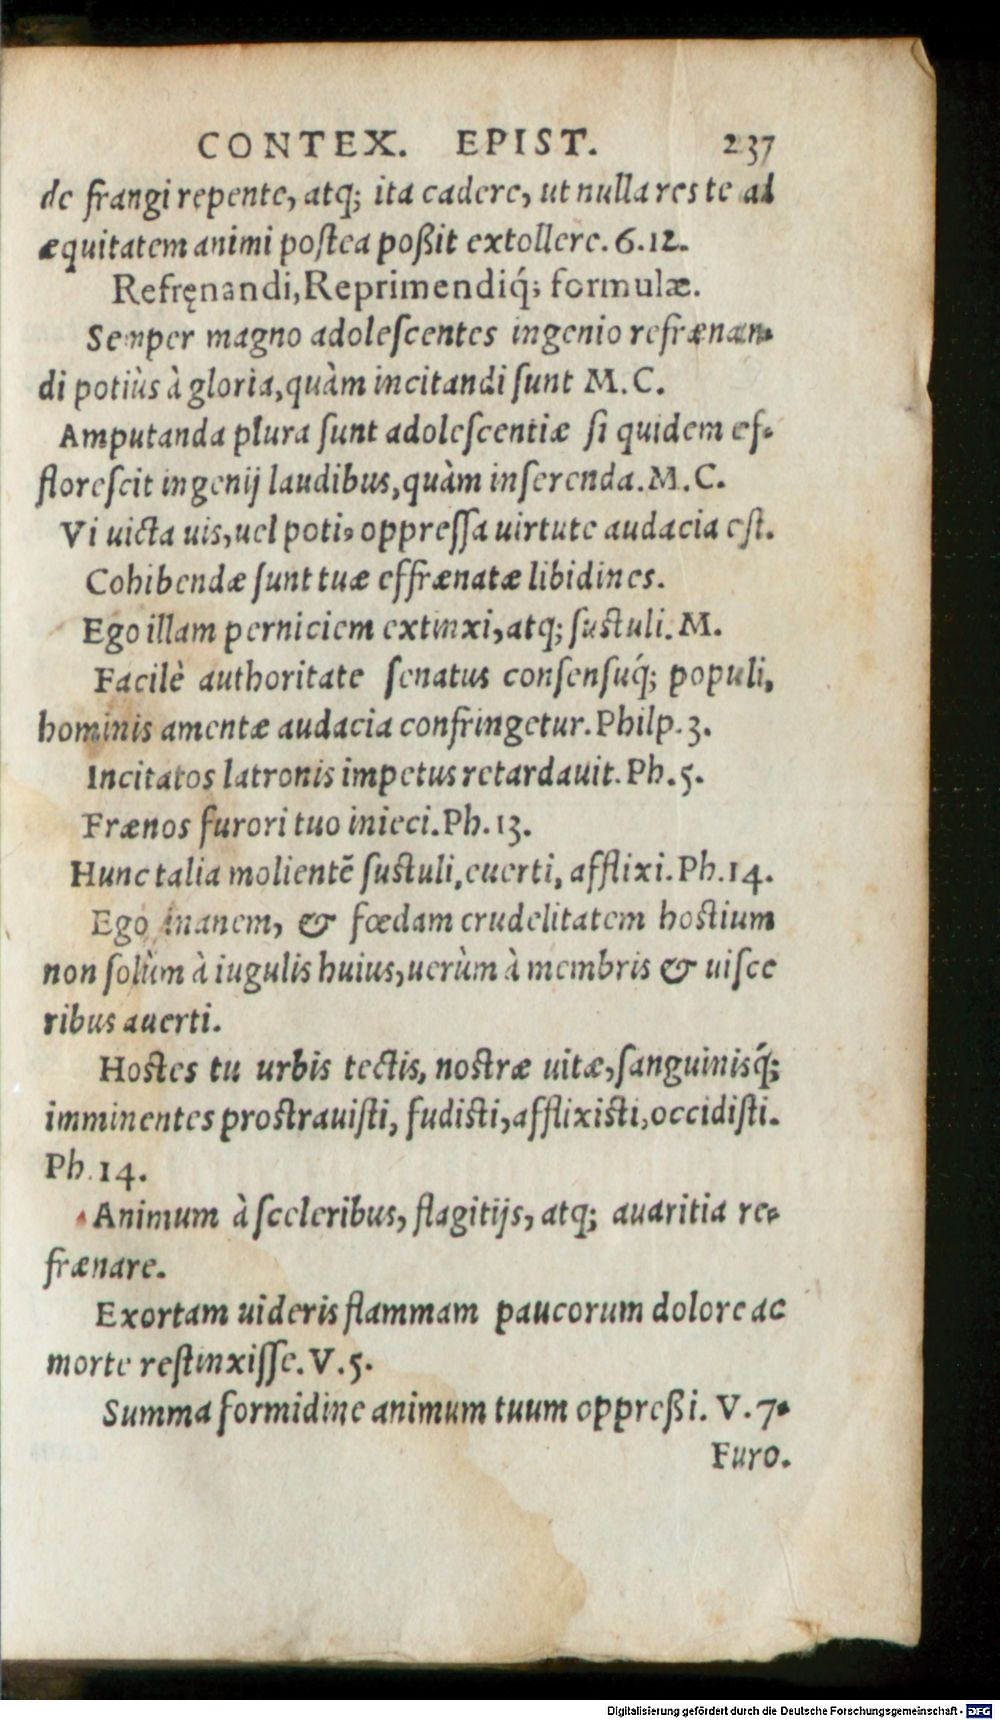 CONTEX. EPIST. 237
de frangi repente, atq; ita cadere, ut nulla res te ad
æquitatem animi postea poßit extollere. 6.12.
Refręnandi, Reprimendiq́; formulæ.
Semper magno adolescentes ingenio refrænan-
di potiùs à gloria, quàm incitandi sunt M.C.
Amputanda plura sunt adolescentiæ si quidem ef-
florescit ingenij laudibus, quàm inserenda. M.C.
Vi uicta uis, uel potiꝰ oppressa uirtute audacia est.
Cohibendæ sunt tuæ effrænatæ libidines.
Ego illam perniciem extinxi, atq; sustuli. M.
Facilè authoritate senatus consensuq́; populi,
hominis amentæ audacia confringetur. Philp. 3.
Incitatos latronis impetus retardauit. Ph. 5.
Frænos furori tuo inieci. Ph. 13.
Hunc talia molientẽ sustuli, euerti, afflixi. Ph. 14.
Ego inanem, & fœdam crudelitatem hostium
non solùm à iugulis huius, uerùm à membris & uisce
ribus auerti.
Hostes tu urbis tectis, nostræ uitæ, sanguinisq́;
imminentes prostrauisti, fudisti, afflixisti, occidisti.
Ph. 14.
Animum à sceleribus, flagitijs, atq; auaritia re-
frænare.
Exortam uideris flammam paucorum dolore ac
morte restinxisse. V. 5.
Summa formidine animum tuum oppreßi. V. 7.
Furo.
Digitalisierung gefördert durch die Deutsche Forschungsgemeinschaft - DFG